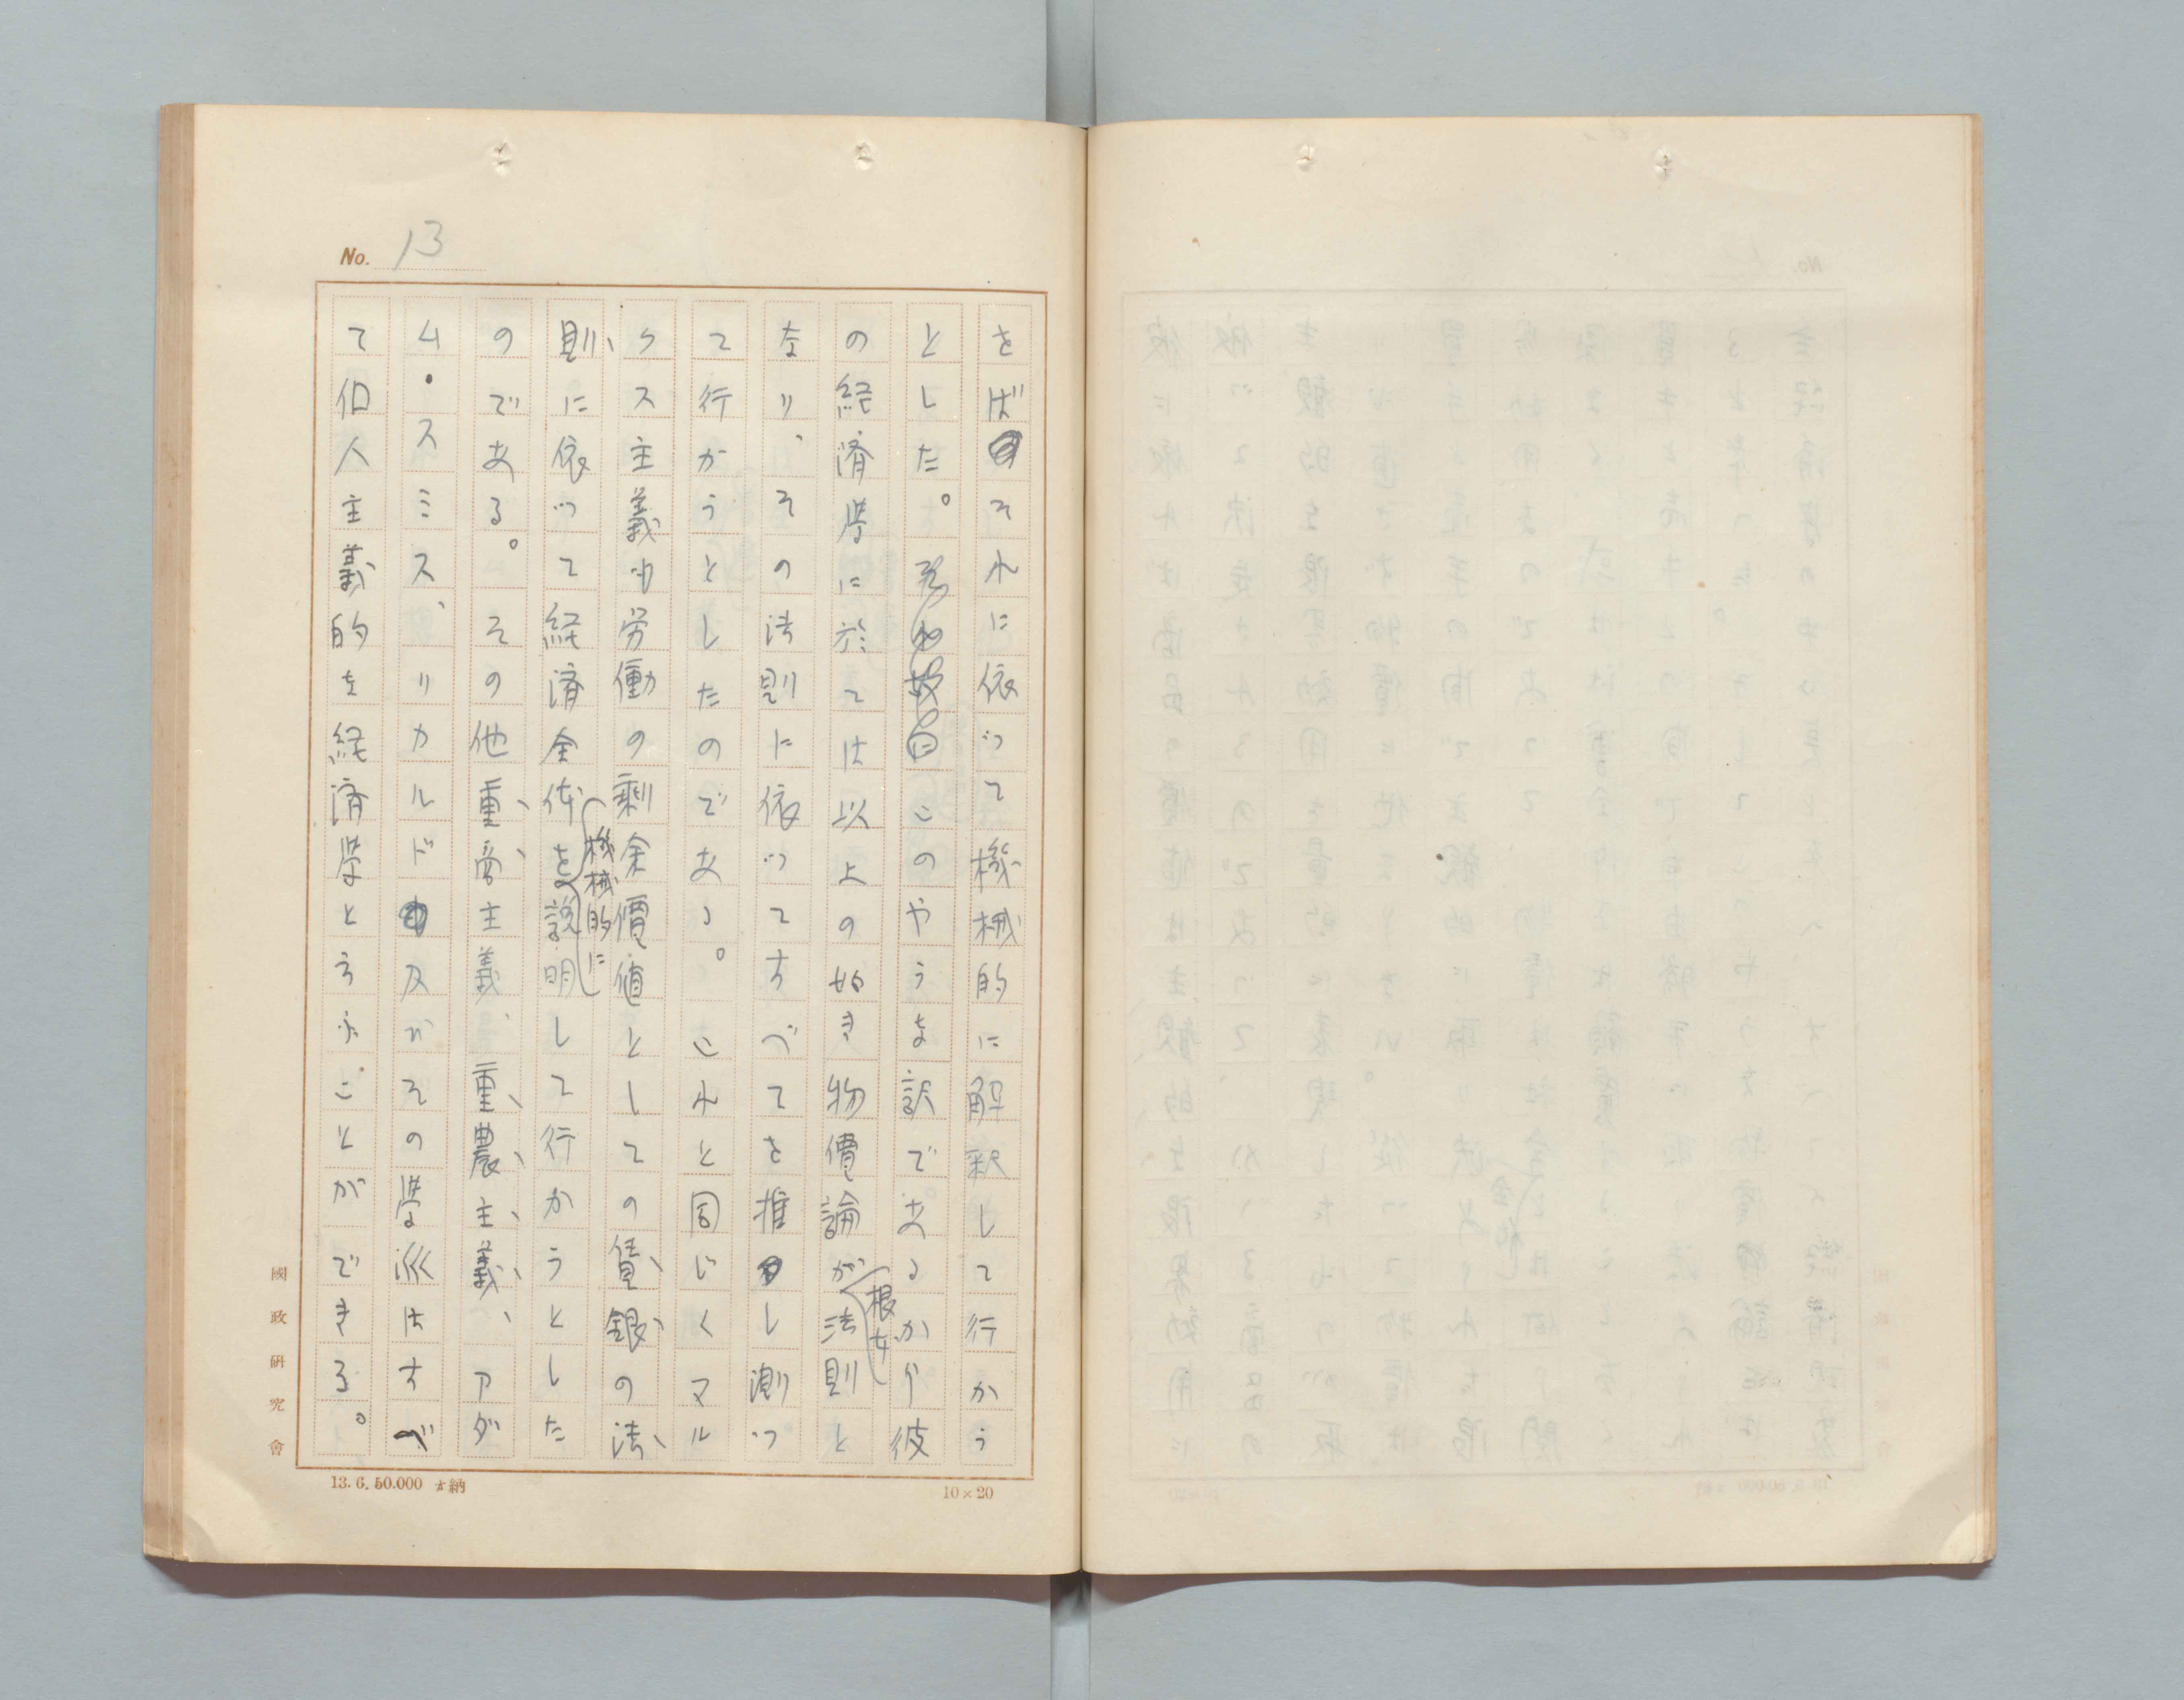 No. 13
をばそれに依つて機械的に解釈して行かう
とした。このやうな訳であるから彼
の経済学に於ては以上の如き物價論が根本法則と
なり、その法則に依つてすべてを推し測つ
て行かうとしたのである。これと同じくマル
クス主義も労働の剰余價値としての賃銀の法
則に依つて経済全体を機械的に説明して行かうとした
のである。その他重商主義、重農主義、アダ
ム・スミス、リカルド及びその学派はすべ
て個人主義的な経済学と言ふことができる。
國政研究會
13.6.50.000 納
10×20